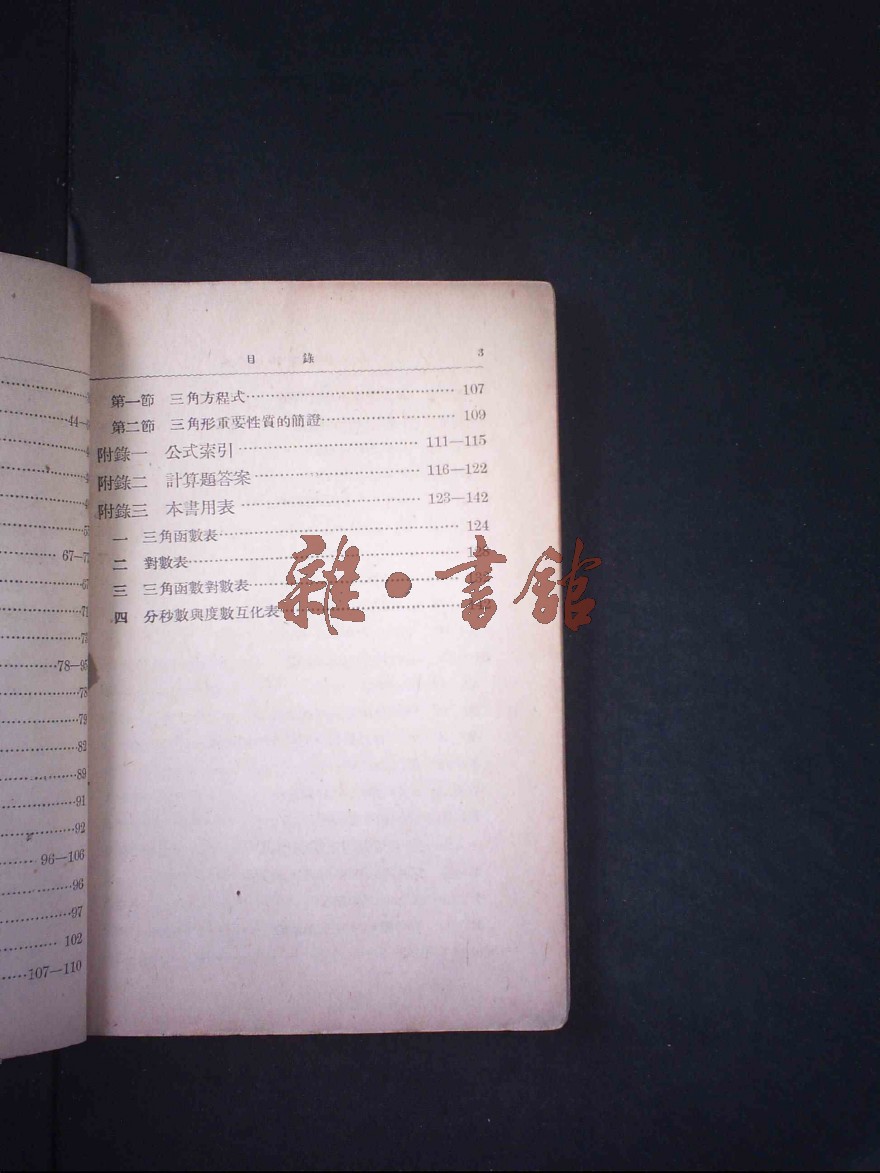 44—
67—7
71
78—95
78
79
82
89
91
92
96—106
96
97
102
107—110
目 錄 3
第一節 三角方程式 107
第二節 三角形重要性質的簡證 109
附錄一 公式索引 111—115
附錄二 計算題答案 116—122
附錄三 本書用表 123—142
一 三角函數表 124
二 對數表
三 三角函數對數表
四 分秒數與度數互化表
雜·書館